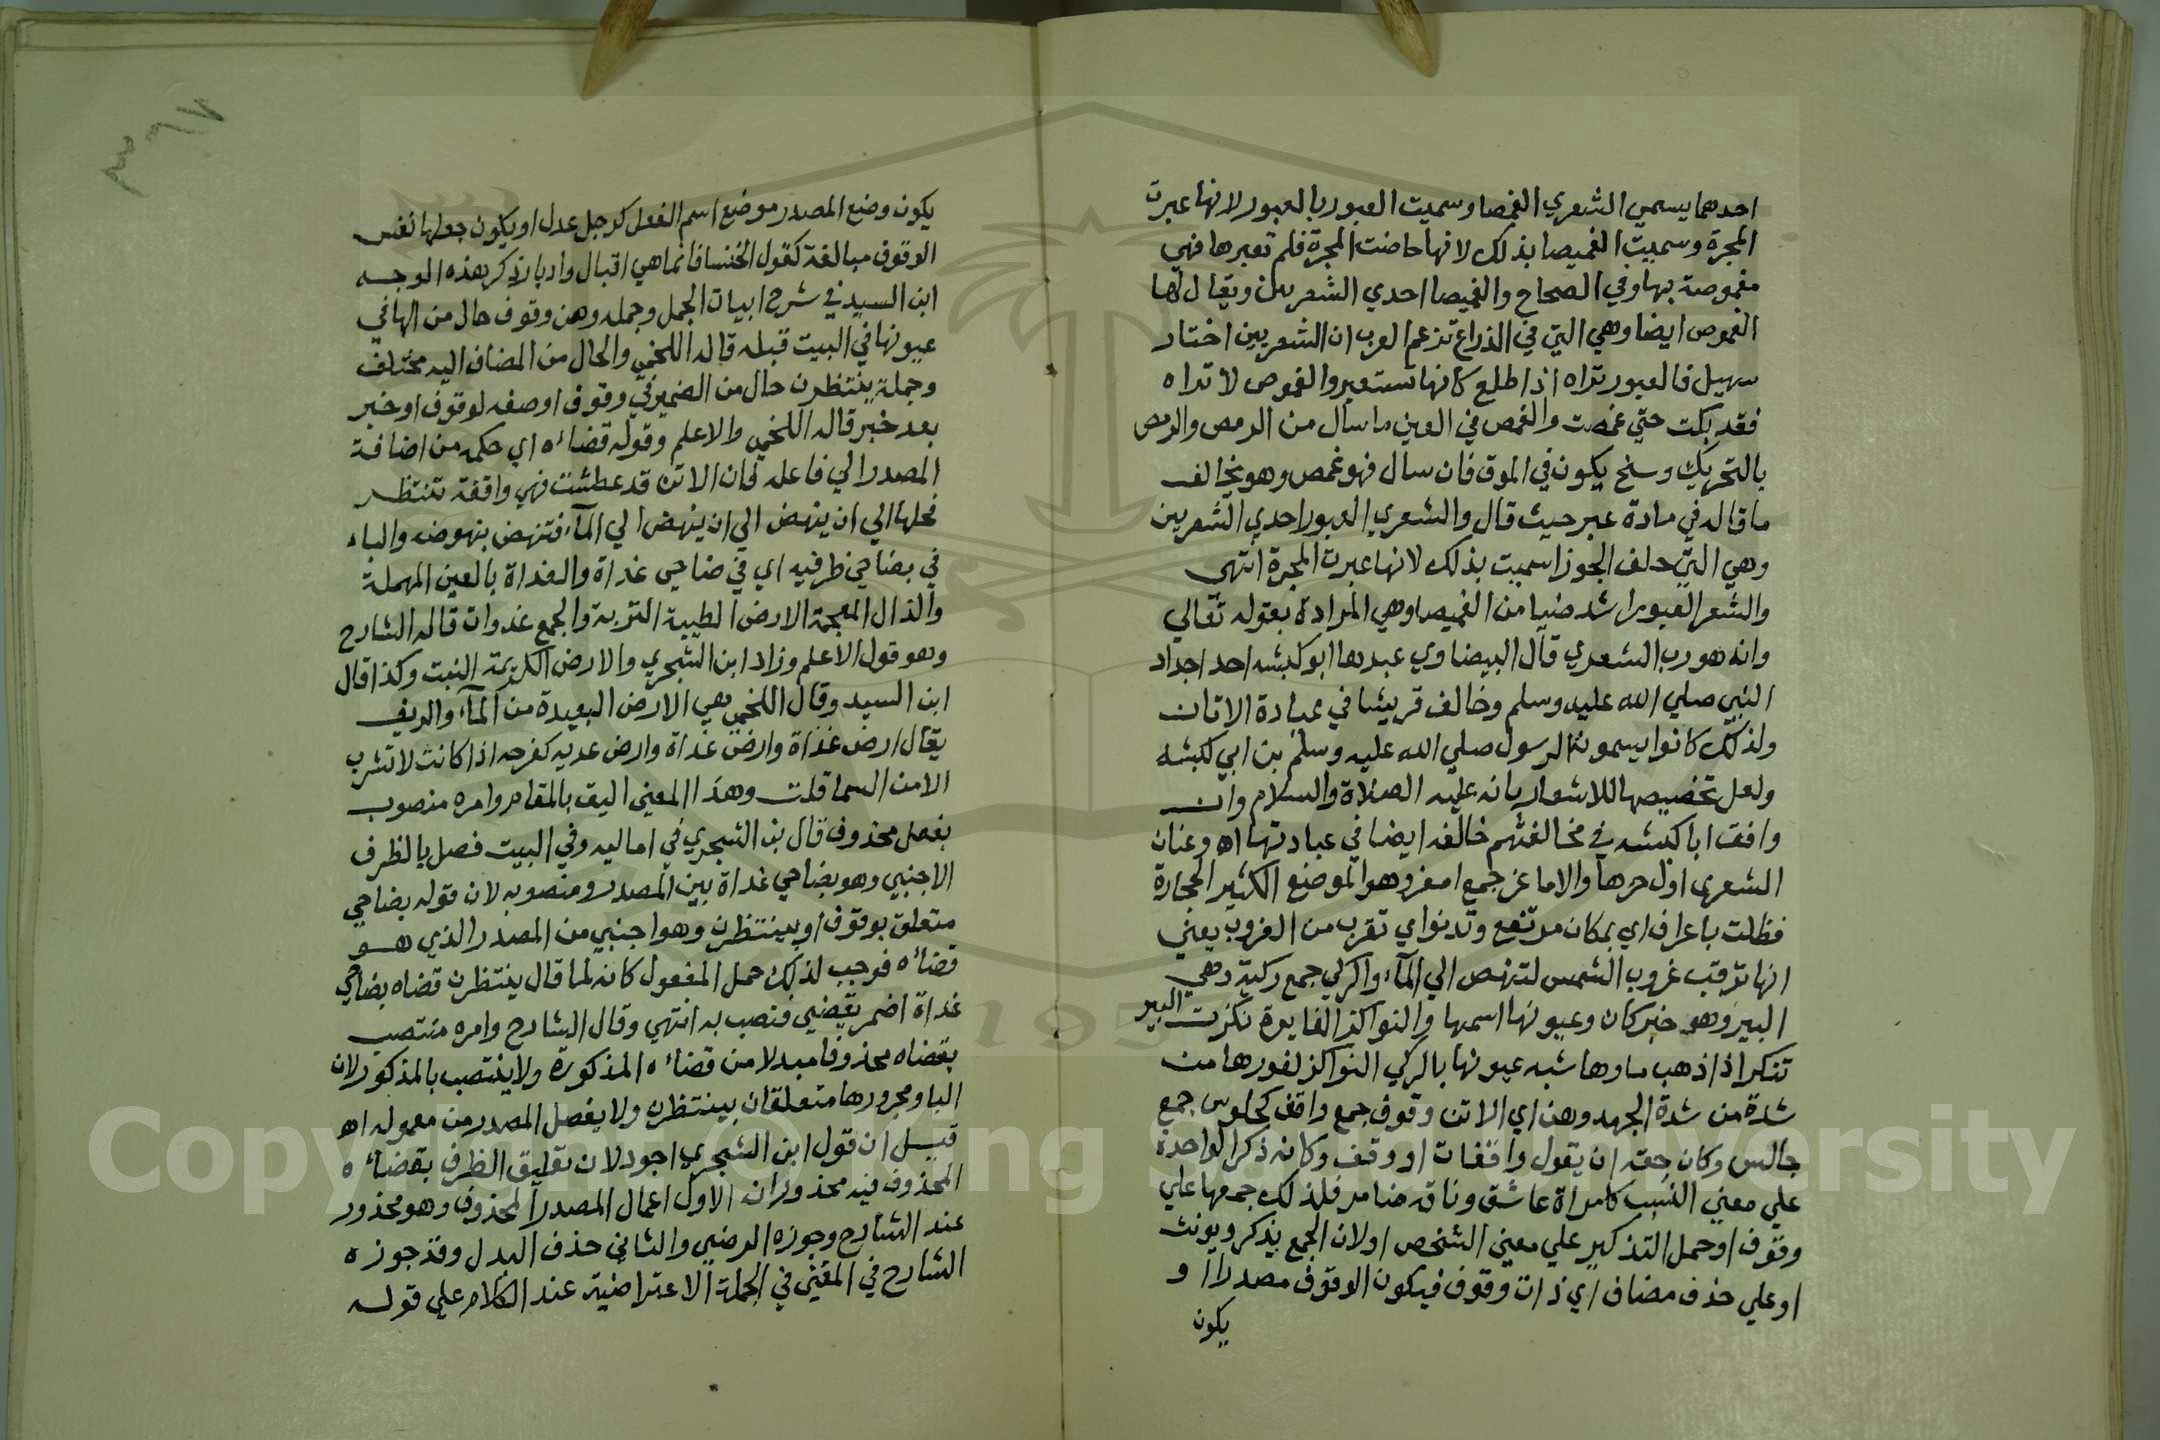 احدهما يسمي الشعري الغمصا وسميت العبور بالعبور لانها عبرت
المجرة وسميت الغميصا بذلك لانها حاضت المجرة فلم تعبرها فهي
مغموصة بها وفي الصحاح والغميصا احدي الشعريين ويقال لها
الغموص ايضا وهي التي في الذراع تزعم العرب ان الشعريين اختار
سهيل فالعبور تراه اذا طلع كانها تستعبر والغموص لا تراه
فقد بكت حتي غمصت والغمص في العين ما سال من الرمص والرمص
بالتحريك وسخ يكون في الموق فان سال فهو غمص وهو يخالف
ما قاله في مادة عبر حيث قال والشعري العبور احدي الشعريين
وهي التي خلف الجوزا سميت بذلك لانها عبرت المجرة انتهي
والشعر العبور اشد ضيا من الغميصا وهي المرادة بقوله تعالي
وانه هو رب الشعري قال البيضاوي عبدها ابو كبشه احد اجداد
النبي صلي الله عليه وسلم وخالف قريشا في عبادة الاتان
ولذلك كانوا يسمون الرسول صلي الله عليه وسلم بن ابي كبشه
ولعل تخصيصها للاشعار بانه عليه الصلاة والسلام وان
وافق ابا كبشه في مخالفتهم خالفه ايضا في عبادتها اه وعنان
الشعري اول حرها والاماعز جمع امعز وهو الموضع الكثير الحجارة
فظلت باعراف اي بمكان مرتفع وتدنوا اي تقرب من الغروب يعني
انها ترقب غروب الشمس لتنهض الي المآء والركي جمع ركية وهي
البير وهو خبر كان وعيونها اسمها والنواكز الغايرة نكزت البير
تنكز اذا ذهب ماوها شبه عيونها بالركي النواكز لغورها من
شدة من شدة الجهد وهن اي الاتن وقوف جمع واقف كجلوس جمع
جالس وكان حقه ان يقول واقفات او وقف وكانه ذكر الواحدة
علي معني النسب كامراة عاشق وناقه ضامر فلذلك جمعها علي
وقوف او حمل التذكير علي معني الشخص اولان الجمع يذكر ويونث
او علي حذف مضاف اي ذات وقوف فيكون الوقوف مصدرا او
يكون
يكون وضع المصدر موضع اسم الفعل كرجل عدل او يكون جعلها نفس
الوقوف مبالغة كقول الخنسا فانما هي اقبال وادبار ذكر هذه الوجه
ابن السيد في شرح ابيات الجمل وجمله وهن وقوف حال من الها في
عيونها في البيت قبله قاله اللخمي والحال من المضاف اليه مختلف
وجملة ينتظرن حال من الضمير في وقوف او صفه لوقوف او خبر
بعد خبر قاله اللخمي والاعلم وقوله قضائه اي حكمه من اضافة
المصدر الي فاعله فان الاتن قد عطشت فهي واقفة تنتظر
فحلها الي ان ينهض الي ان ينهض الي المآء فتنهض بنهوضه والباء
في بضاحي ظرفيه اي في ضاحي غداة والغداة بالعين المهملة
والذال المعجمة الارض الطيبة التربة والجمع غدوات قاله الشارح
وهو قول الاعلم وزاد ابن الشجري والارض الكريمة النبت وكذا قال
ابن السيد وقال اللخمي هي الارض البعيدة من المآء والريف
يقال ارض غداة وارض غداة وارض عديه كفرحه اذا كانت لا تشرب
الا من السما قلت وهذا المعني اليق بالمقام وامره منصوب
بفعل محذوف قال بن الشجري في اماليه وفي البيت فصل بالظرف
الاجنبي وهو بضاحي غداة بين المصدر ومنصوبه لان قوله بضاحي
متعلق بوقوف او بينتظرن وهو اجنبي من المصدر الذي هو
قضائه فوجب لذلك حمل المفعول كانه لما قال ينتظرن قضاه بضاحي
غداة اضمر يقضي فنصب به انتهي وقال الشارح وامره منتصب
بقضاه محذوفا مبدلا من قضائه المذكورة ولا ينتصب بالمذكور لان
البا ومجرورها متعلقان بينتظرن ولا يفصل المصدر من معموله اه
قيل ان قول ابن الشجري اجود لان تعليق الظرف بقضائه
المحذوف فيه محذوران الاول اعمال المصدر المحذوف وهو محذور
عند الشارح وجوزه الرضي والثاني حذف البدل وقد جوزه
الشارح في المغني في الجملة الاعتراضية عند الكلام علي قوله